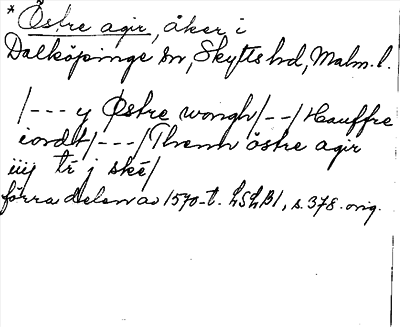 * Östre agir, åker i
Dalköpinge sn, Skytts hd, Malm. l.
/--- y Østre wongh/--/Hauffre
iordt/---/Thenn östre agir
iiij tr̄ j skē/
förra delen av 1570-t. LSLB1, s. 378. orig.